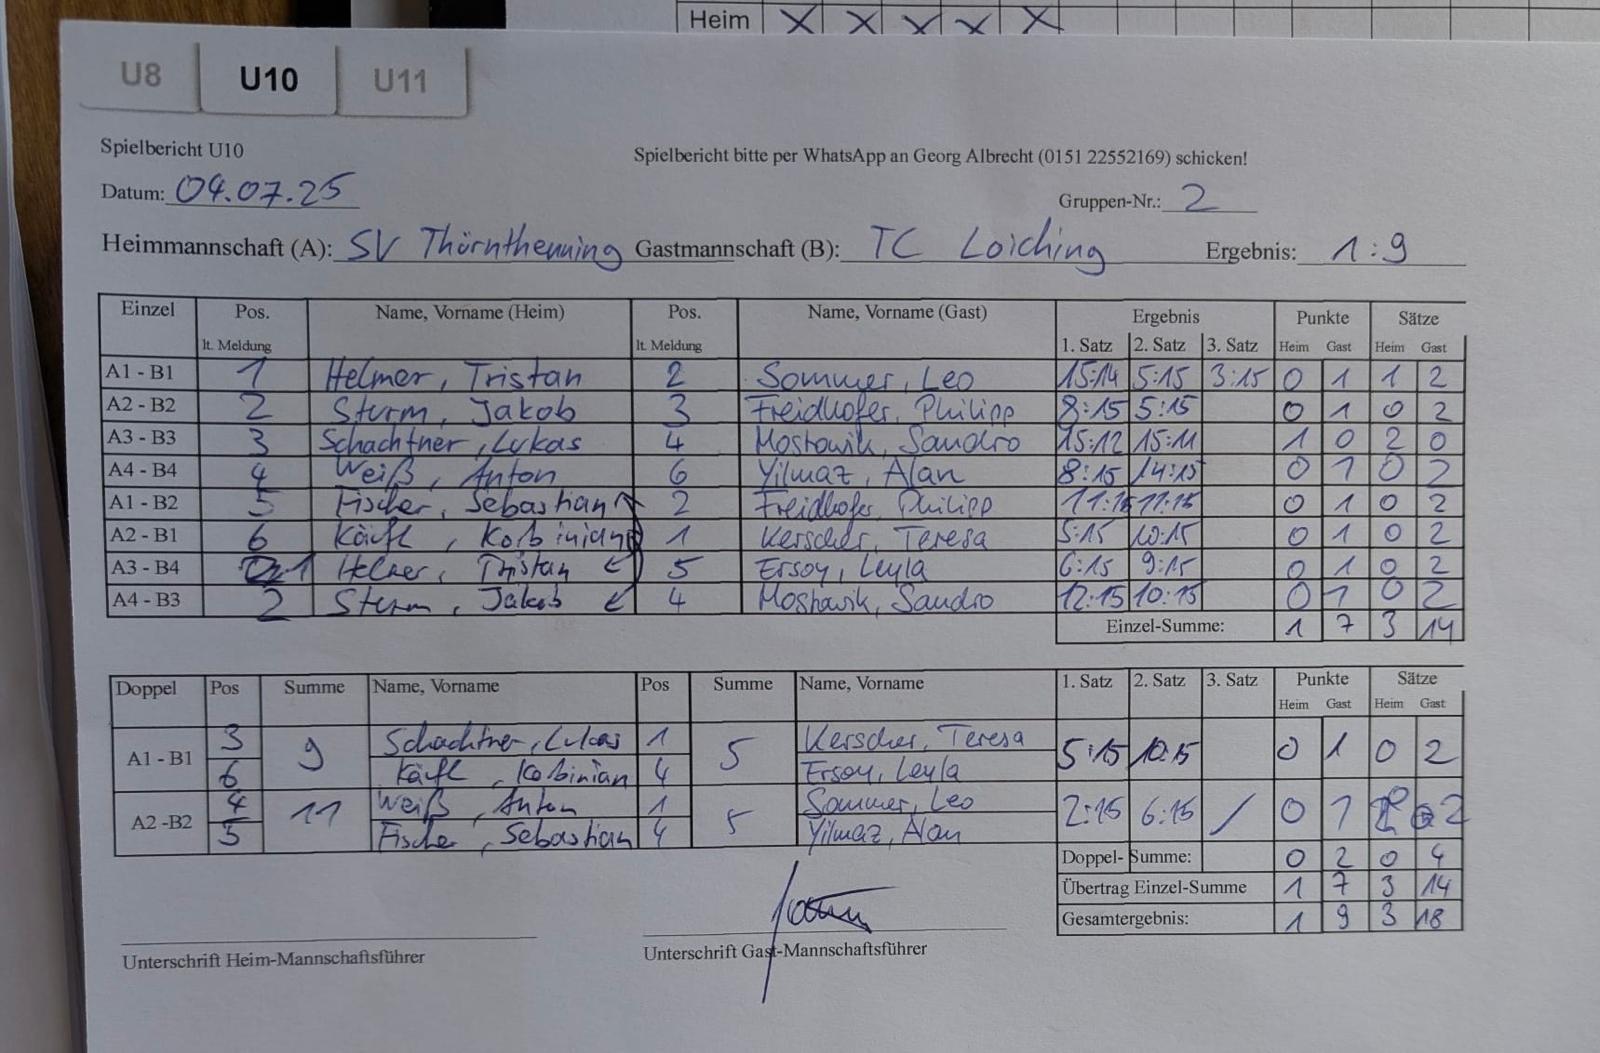 Heim X X X X X
U8 U10 U11
Spielbericht U10
Spielbericht bitte per WhatsApp an Georg Albrecht (0151 22552169) schicken!
Datum: 04.07.25 Gruppen-Nr.: 2
Heimmannschaft (A): SV Thürnthenning Gastmannschaft (B): TC Loiching Ergebnis: 1:9
Einzel Pos. Name, Vorname (Heim) Pos. Name, Vorname (Gast) Ergebnis Punkte Sätze
lt. Meldung lt. Meldung 1. Satz 2. Satz 3. Satz Heim Gast Heim Gast
A1 - B1 1 Helmer, Tristan 2 Sommer, Leo 15:14 5:15 3:15 0 1 1 2
A2 - B2 2 Sturm, Jakob 3 Freidhofer, Philipp 8:15 5:15 0 1 0 2
A3 - B3 3 Schachtner, Lukas 4 Mostowik, Sandro 15:12 15:11 1 0 2 0
A4 - B4 4 Weiß, Anton 6 Yilmaz, Alan 8:15 14:15 0 1 0 2
A1 - B2 5 Fischer, Sebastian 2 Freidhofer, Philipp 11:15 11:15 0 1 0 2
A2 - B1 6 Käufl, Korbinian 1 Kerscher, Teresa 5:15 10:15 0 1 0 2
A3 - B4 1 Helmer, Tristan 5 Ersoy, Leyla 6:15 9:15 0 1 0 2
A4 - B3 2 Sturm, Jakob 4 Mostowik, Sandro 12:15 10:15 0 1 0 2
Einzel-Summe: 1 7 3 14
Doppel Pos Summe Name, Vorname Pos Summe Name, Vorname 1. Satz 2. Satz 3. Satz Punkte Sätze
Heim Gast Heim Gast
3 Schachtner, Lukas 1 Kerscher, Teresa
A1 - B1 9 5 5:15 10:15 0 1 0 2
6 Käufl, Korbinian 4 Ersoy, Leyla
4 Weiß, Anton 1 Sommer, Leo
A2 -B2 11 5 2:15 6:15 / 0 1 0 2
5 Fischer, Sebastian 4 Yilmaz, Alan
Doppel- Summe: 0 2 0 4
Übertrag Einzel-Summe 1 7 3 14
Gesamtergebnis: 1 9 3 18
Unterschrift Heim-Mannschaftsführer Unterschrift Gast-Mannschaftsführer